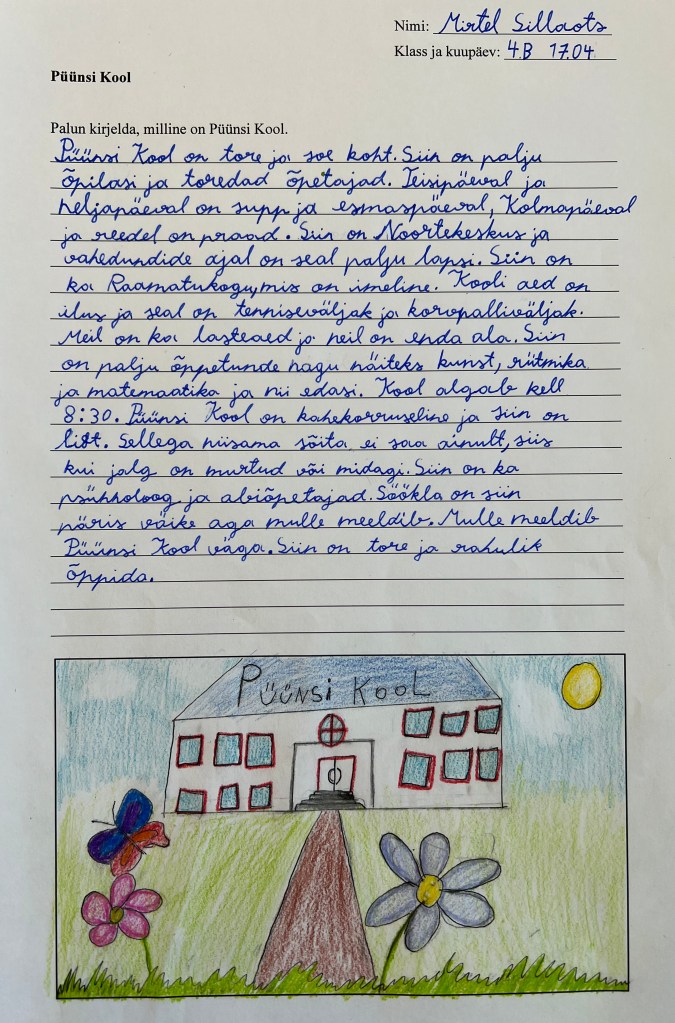 Nimi: Mirtel Sillaots
Klass ja kuupäev: 4.B 17.04
Püünsi Kool
Palun kirjelda, milline on Püünsi Kool.
Püünsi Kool on tore ja soe koht. Siin on palju
õpilasi ja toredad õpetajad. Teisipäeval ja
neljapäeval on supp ja esmaspäeval, Kolmapäeval
ja reedel on praad. Siin on Noortekeskus ja
vahedundide ajal on seal palju lapsi. Siin on
ka Raamatukogu, mis on imeline. Kooli aed on
ilus ja seal on tenniseväljak ja korvpalliväljak.
Meil on ka lasteaed ja neil on enda ala. Siin
on palju õppetunde nagu näiteks kunst, rütmika
ja matemaatika ja nii edasi. Kool algab kell
8:30. Püünsi Kool on kahekorruseline ja siin on
lift. Sellega niisama sõita ei saa ainult, siis
kui jalg on murtud või midagi. Siin on ka
psühholoog ja abiõpetajad. Söökla on siin
päris väike aga mulle meeldib. Mulle meeldib
Püünsi Kool väga. Siin on tore ja rahulik
õppida.
PÜÜNSI KOOL